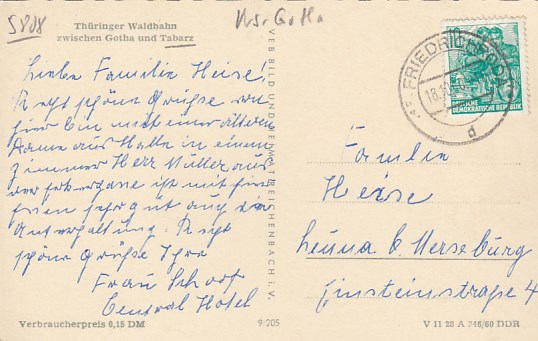 5808
Krs. Gotha
Thüringer Waldbahn
zwischen Gotha und Tabarz
Liebe Familie Heise!
Recht schöne Grüße von
hier bin mit einer älteren
Dame aus Halle in einem
Zimmer Herr Müller aus
der ist mit hier
sehr gut auch die
Unterhaltung. Recht
schöne Grüße Ihre
Frau Schoof
Central Hotel
Verbraucherpreis 0,15 DM
9/205
VEB BILD UND HEIMAT REICHENBACH I. V.
FRIEDRICHRODA
18.10.
d
DEUTSCHE
DEMOKRATISCHE REPUBLIK
Familie
Heise
Leuna b. Merseburg
Einsteinstraße 4
V 11 28 A 746/60 DDR